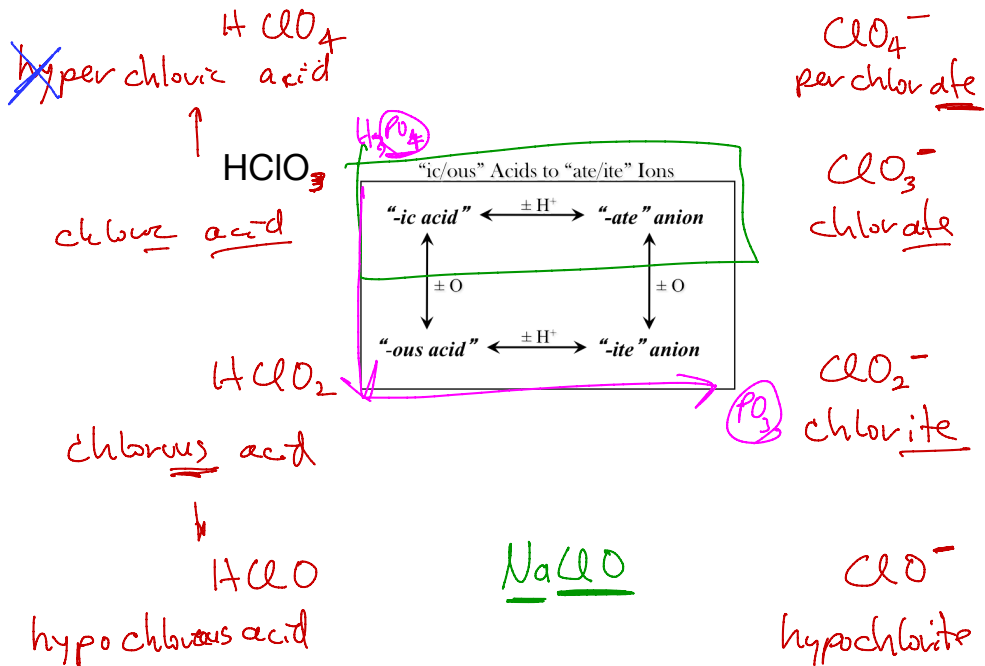 HClO4
hyperchloric acid
HClO3
chloric acid
HClO2
chlorous acid
HClO
hypochlorous acid
H3PO4
“ic/ous” Acids to “ate/ite” Ions
“-ic acid” ± H+ “-ate” anion
± O ± O
“-ous acid” ± H+ “-ite” anion
PO3
NaClO
ClO4−
perchlorate
ClO3−
chlorate
ClO2−
chlorite
ClO−
hypochlorite